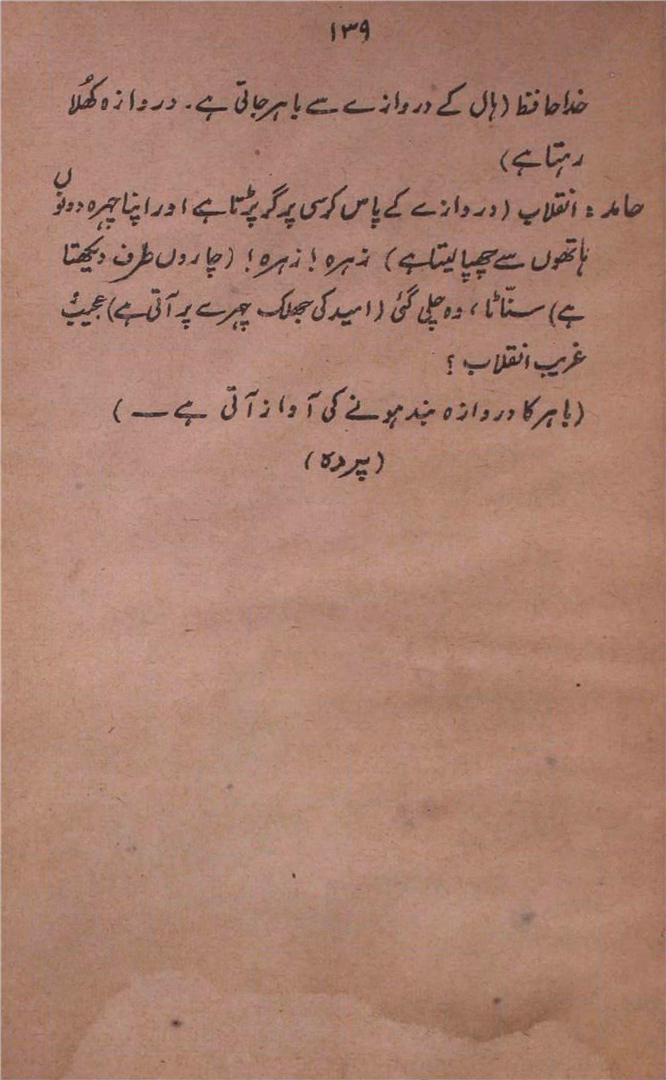 ۱۳۹
خدا حافظ (ہال کے دروازے سے باہر جاتی ہے۔ دروازہ کھُلا
رہتا ہے)
حامد : انقلاب (دروازے کے پاس کرسی پر گر پڑتا ہے اور اپنا چہرہ دونوں
ہاتھوں سے چھپا لیتا ہے) زہرہ! زہرہ! (چاروں طرف دیکھتا
ہے) سنّاٹا، وہ چلی گئی (امید کی جھلک چہرے پر آتی ہے) عجیب و
غریب انقلاب ؟
(باہر کا دروازہ بند ہونے کی آواز آتی ہے ــــ)
(پردہ)